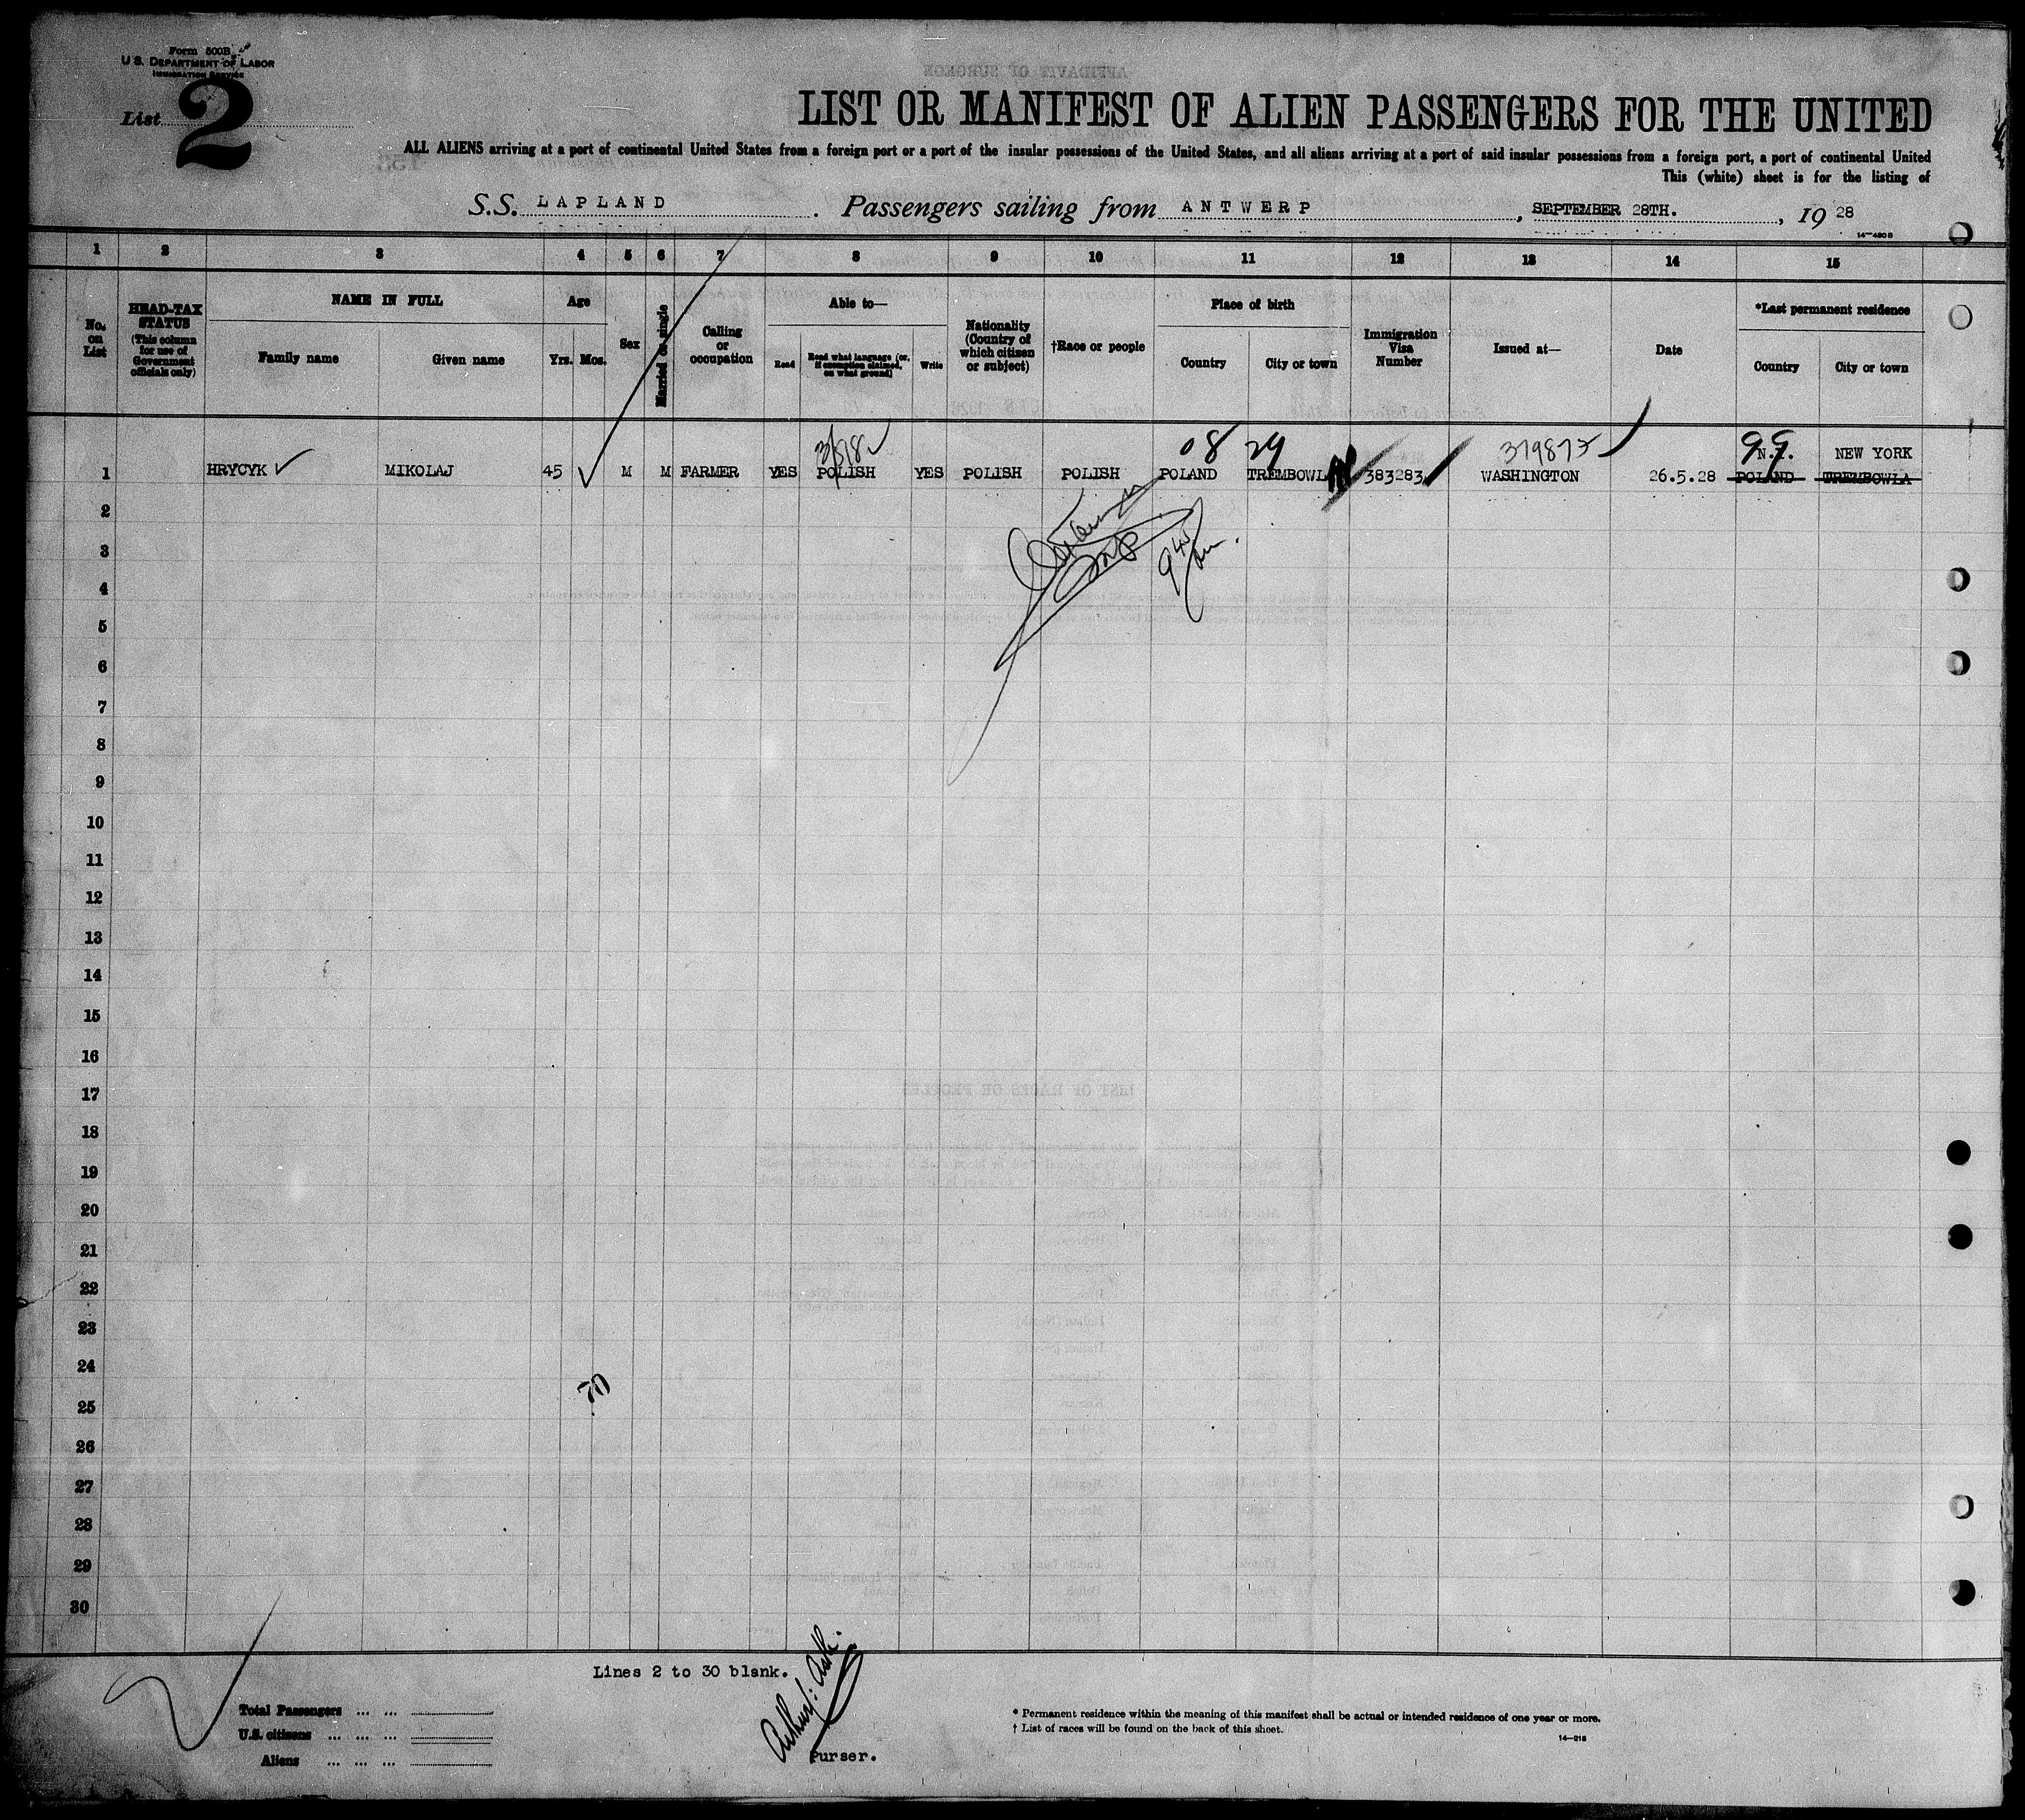 Form 500B
U.S. DEPARTMENT OF LABOR
IMMIGRATION SERVICE
List 2
LIST OR MANIFEST OF ALIEN PASSENGERS FOR THE UNITED
ALL ALIENS arriving at a port of continental United States from a foreign port or a port of the insular possessions of the United States, and all aliens arriving at a port of said insular possessions from a foreign port, a port of continental United
This (white) sheet is for the listing of
S.S. LAPLAND. Passengers sailing from ANTWERP, SEPTEMBER 28TH., 19 28
14-4808
1 2 3 4 5 6 7 8 9 10 11 12 13 14 15
No. on List
HEAD-TAX STATUS (This column for use of Government officials only)
NAME IN FULL
Family name Given name
Age
Yrs. Mos.
Sex
Married or single
Calling or occupation
Able to—
Read Read what language (or, if exemption claimed, on what ground) Write
Nationality (Country of which citizen or subject)
†Race or people
Place of birth
Country City or town
Immigration Visa Number
Issued at—
Date
*Last permanent residence
Country City or town
08 29 379873 99
N.Y. NEW YORK
1 HRYCYK MIKOLAJ 45 M M FARMER YES POLISH YES POLISH POLISH POLAND TREMBOWLA 383283 WASHINGTON 26.5.28 POLAND TREMBOWLA
2
3
4
5
6
7
8
9
10
11
12
13
14
15
16
17
18
19
20
21
22
23
24
25
26
27
28
29
30
Lines 2 to 30 blank.
Total Passengers ... ...
U.S. citizens ... ... ...
Aliens ... ... ...
Purser.
* Permanent residence within the meaning of this manifest shall be actual or intended residence of one year or more.
† List of races will be found on the back of this sheet.
14-218